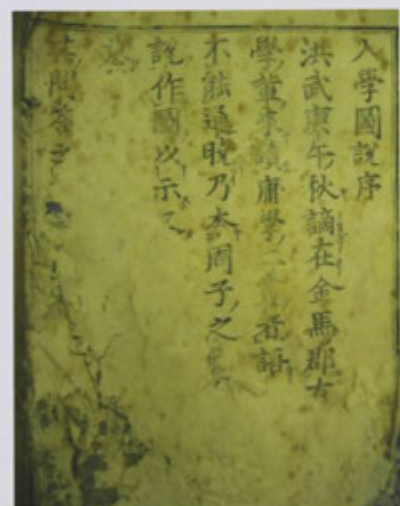 入學圖說序
洪武庚午秋謫在金馬郡有
學輩來讀庸學二 語
不能通曉乃本周子之
說作圖以示
其問答